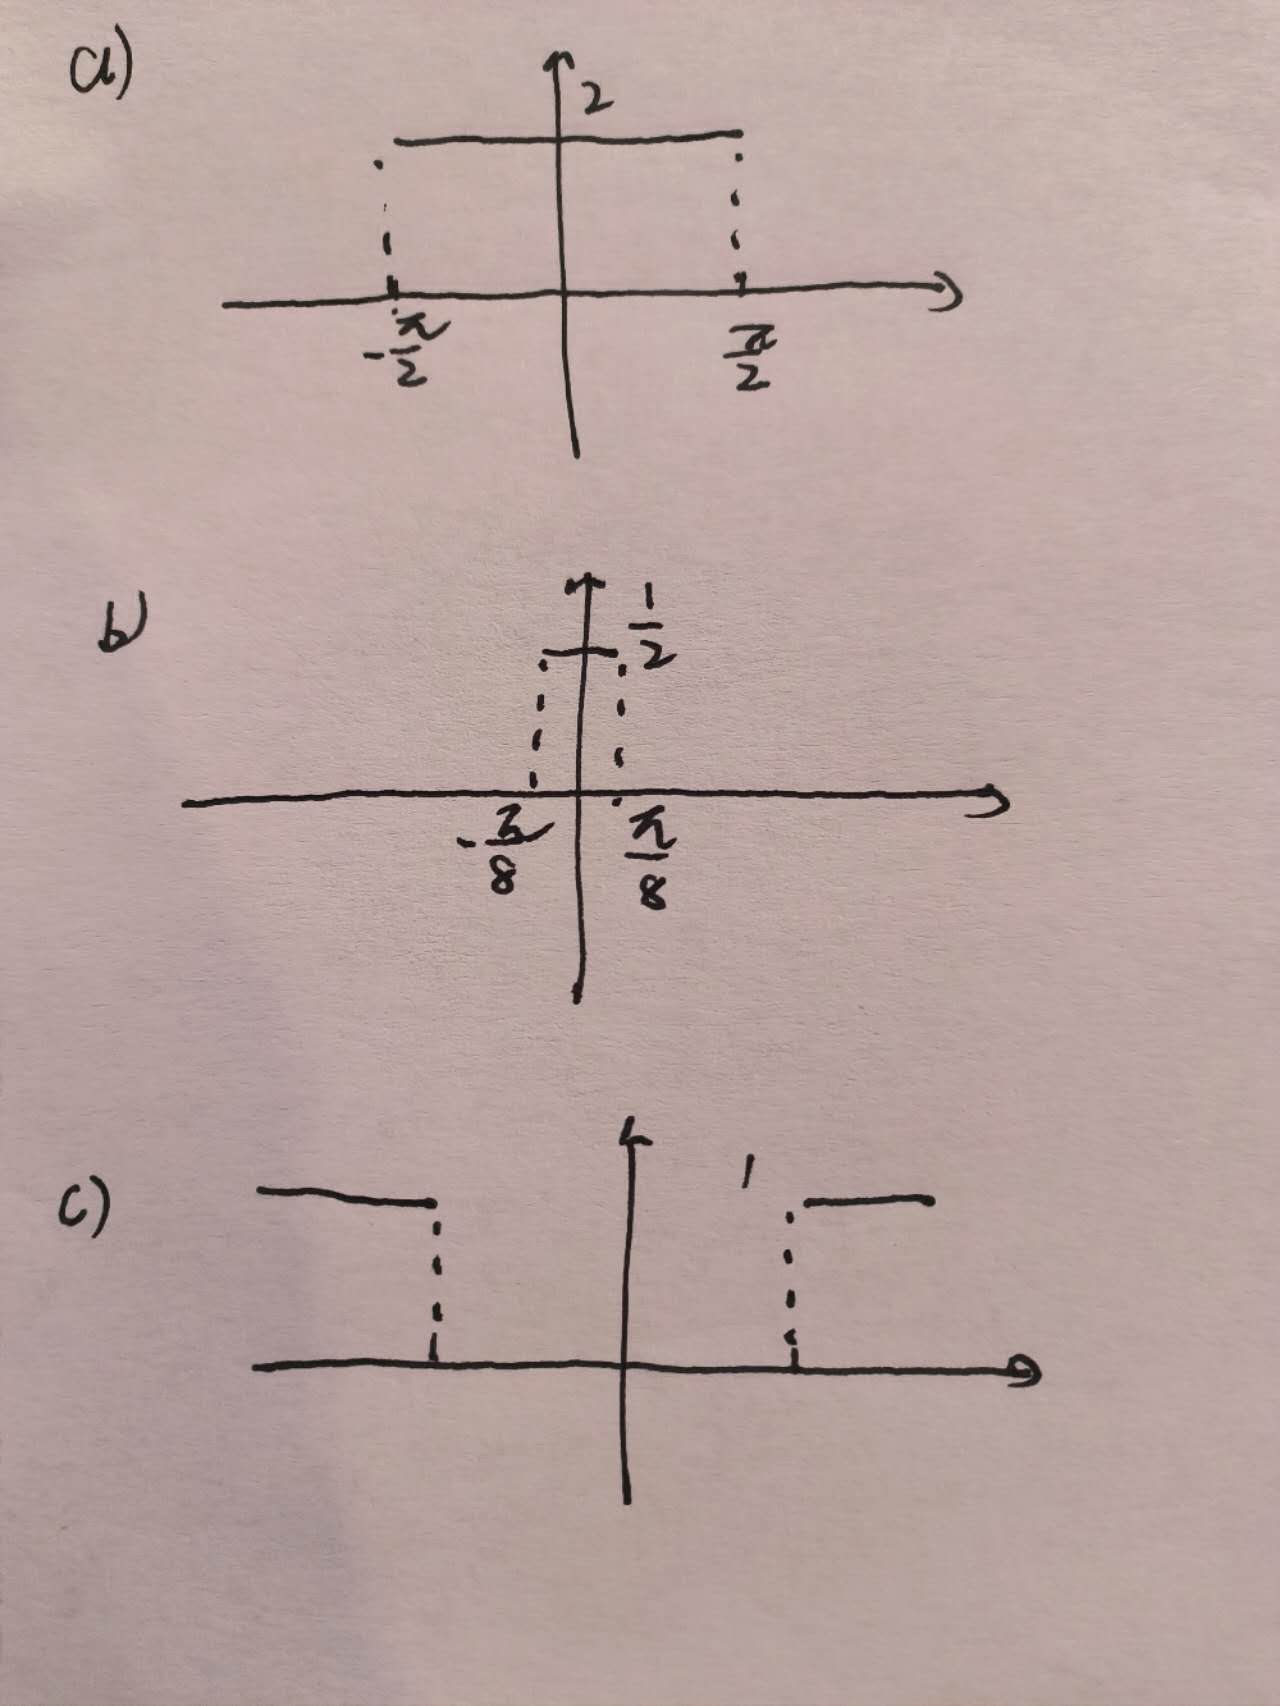 a)
2
-π/2 π/2
b)
1/2
-π/8 π/8
c)
1